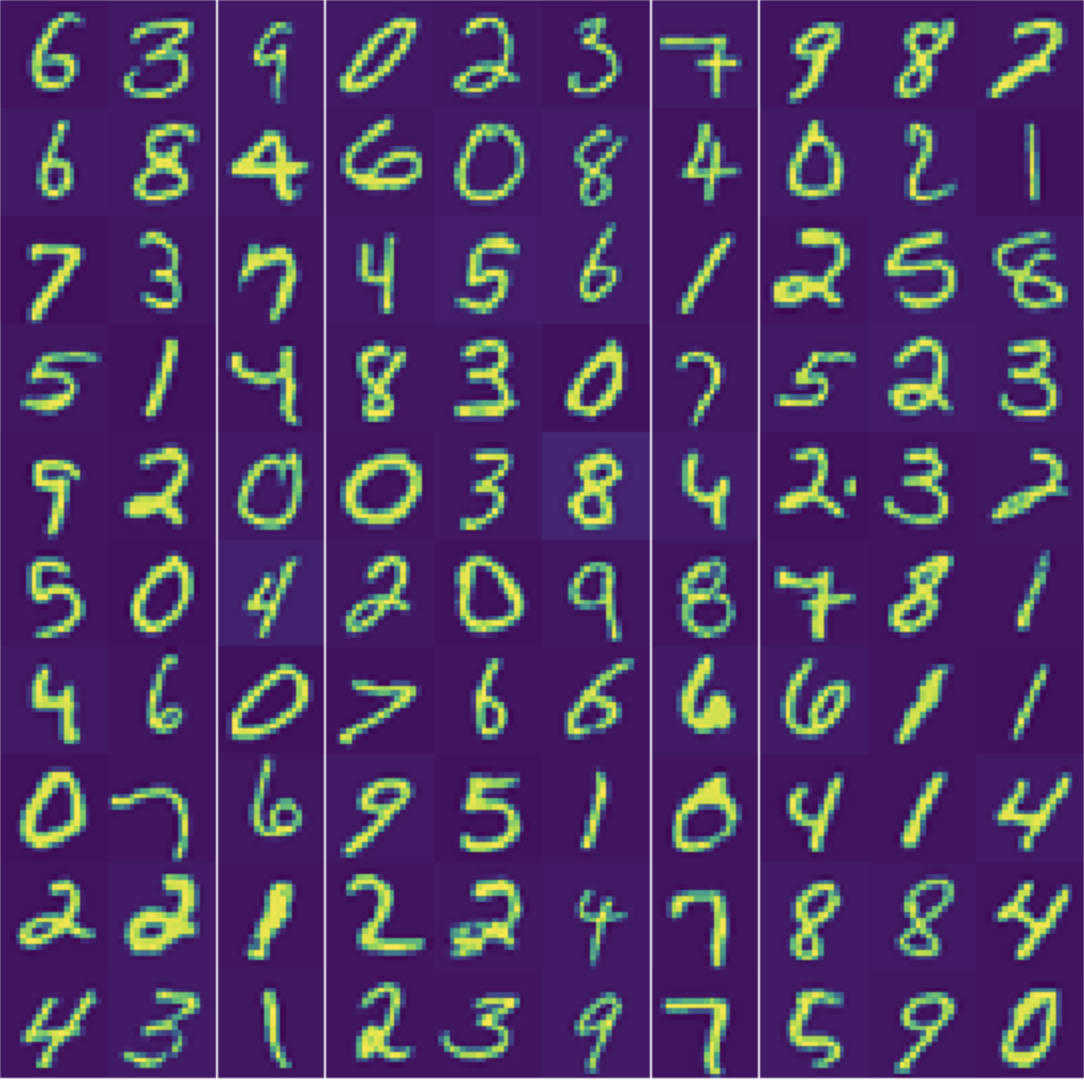 6 3 9 0 2 3 7 9 8 2
6 8 4 6 0 8 4 0 2 1
7 3 7 4 5 6 1 2 5 8
5 1 4 8 3 0 7 5 2 3
9 2 0 0 3 8 4 2 3 2
5 0 4 2 0 9 8 7 8 1
4 6 0 7 6 6 6 6 1 1
0 7 6 9 5 1 0 4 1 4
2 2 1 2 2 4 7 8 8 4
4 3 1 2 3 9 7 5 9 0